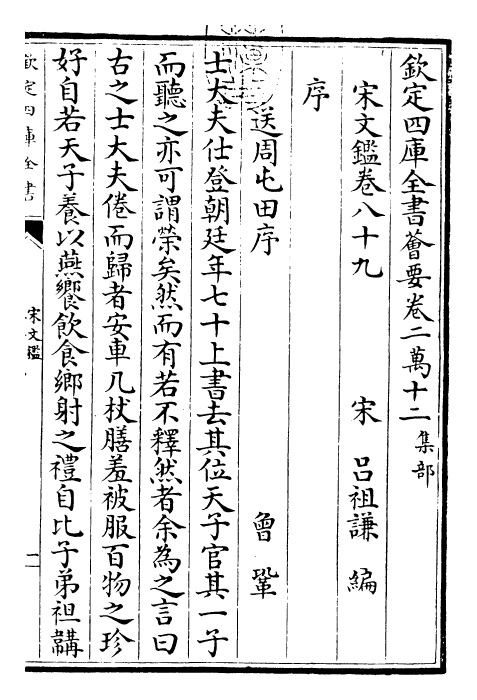 欽定四庫全書薈要卷二萬十二 集部
宋文鑑卷八十九 宋 呂祖謙 編
序
送周屯田序 曾鞏
士大夫仕登朝廷年七十上書去其位天子官其一子
而聽之亦可謂榮矣然而有若不釋然者余為之言曰
古之士大夫倦而歸者安車几杖膳羞被服百物之珍
好自若天子養以燕饗飲食鄉射之禮自比子弟袒韝
欽定四庫全書
宋文鑑
一